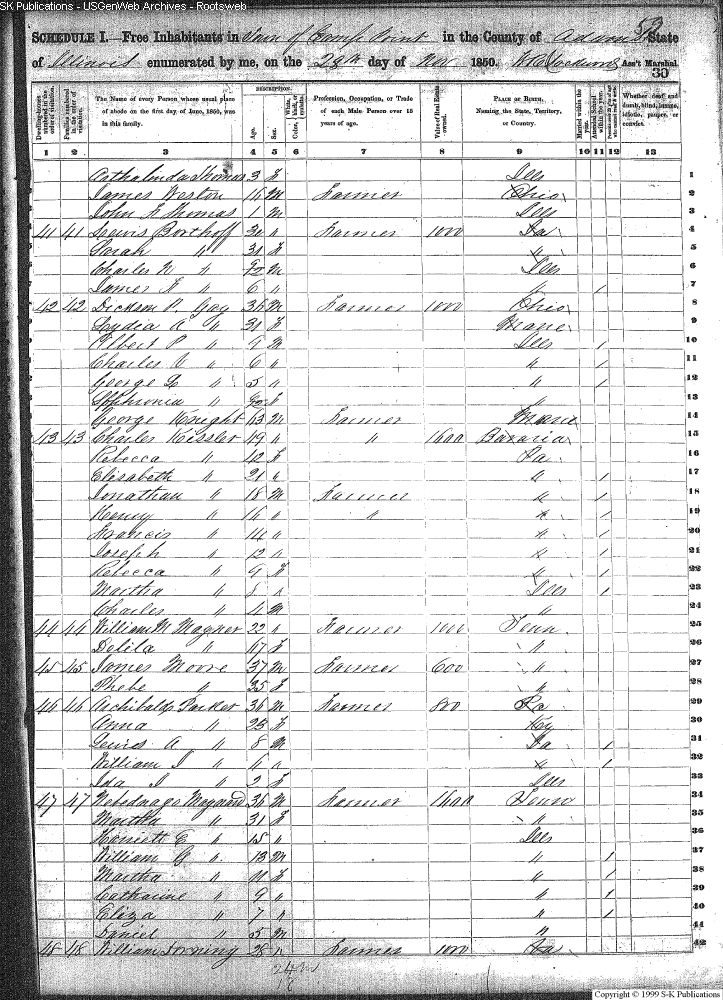 SK Publications - USGenWeb Archives - Rootsweb
SCHEDULE I.—Free Inhabitants in Town of Camp Point in the County of Adams State
of Illinois enumerated by me, on the 28th day of Nov 1850. Ass't Marshal
30
DESCRIPTION.
Dwelling-houses numbered in the order of visitation. Families numbered in the order of visitation. The Name of every Person whose usual place of abode on the first day of June, 1850, was in this family. Age. Sex. Profession, Occupation, or Trade of each Male Person over 15 years of age. Value of Real Estate owned. PLACE OF BIRTH. Naming the State, Territory, or Country. Married within the year. Attended School within the year. Whether deaf and dumb, blind, insane, idiotic, pauper, or convict.
1 2 3 4 5 6 7 8 9 10 11 12 13
Thomas 3 f Ills 1
James Weston 16 m Farmer Ohio 2
John F Thomas 1 m Ills 3
41 41 Lewis Borthoff 31 " Farmer 1000 Pa 4
Sarah " 31 f " 5
Charles N " 9/12 m Ills 6
James F " 6 " " / 7
42 42 Dickson P. Gay 36 m Farmer 1000 Ohio 8
Lydia A " 31 f Mane 9
Albert P " 9 m Ills / 10
Charles V " 6 " " / 11
George " 5 " " / 12
Sophronia " f " 13
George Knight 63 m Farmer Mane 14
43 43 Charles Kissler 49 " " 1600 Bavaria 15
Rebecca " 42 f Pa 16
Elisabeth " 21 " " / 17
Jonathan " 18 m Farmer " / 18
Henry " 16 " " " / 19
Francis " 14 " " / 20
Joseph " 12 " " / 21
Rebecca " 9 f " / 22
Martha " 8 " Ills / 23
Charles " 4 m " 24
44 44 William M Magner 22 " Farmer 1000 Tenn 25
Delila " 17 f " 26
45 45 James Moore 37 m Farmer 600 " 27
Phebe " 35 f " 28
46 46 Archibald Parker 36 m Farmer 800 Pa 29
Anna " 25 f Key 30
Lewis A " 8 m Pa / 31
William J " 6 " " / 32
Ida J " 2 f Ills 33
47 47 36 m Farmer 1600 Tenn 34
Martha " 31 f " 35
Harriett E " 15 " Ills 36
William G " 13 m " / 37
Martha " 11 f " / 38
Catharine " 9 " " / 39
Eliza " 7 " " / 40
Daniel " 5 m " 41
48 48 William 28 " Farmer 1000 Pa 42
24m
18
Copyright © 1999 S-K Publications